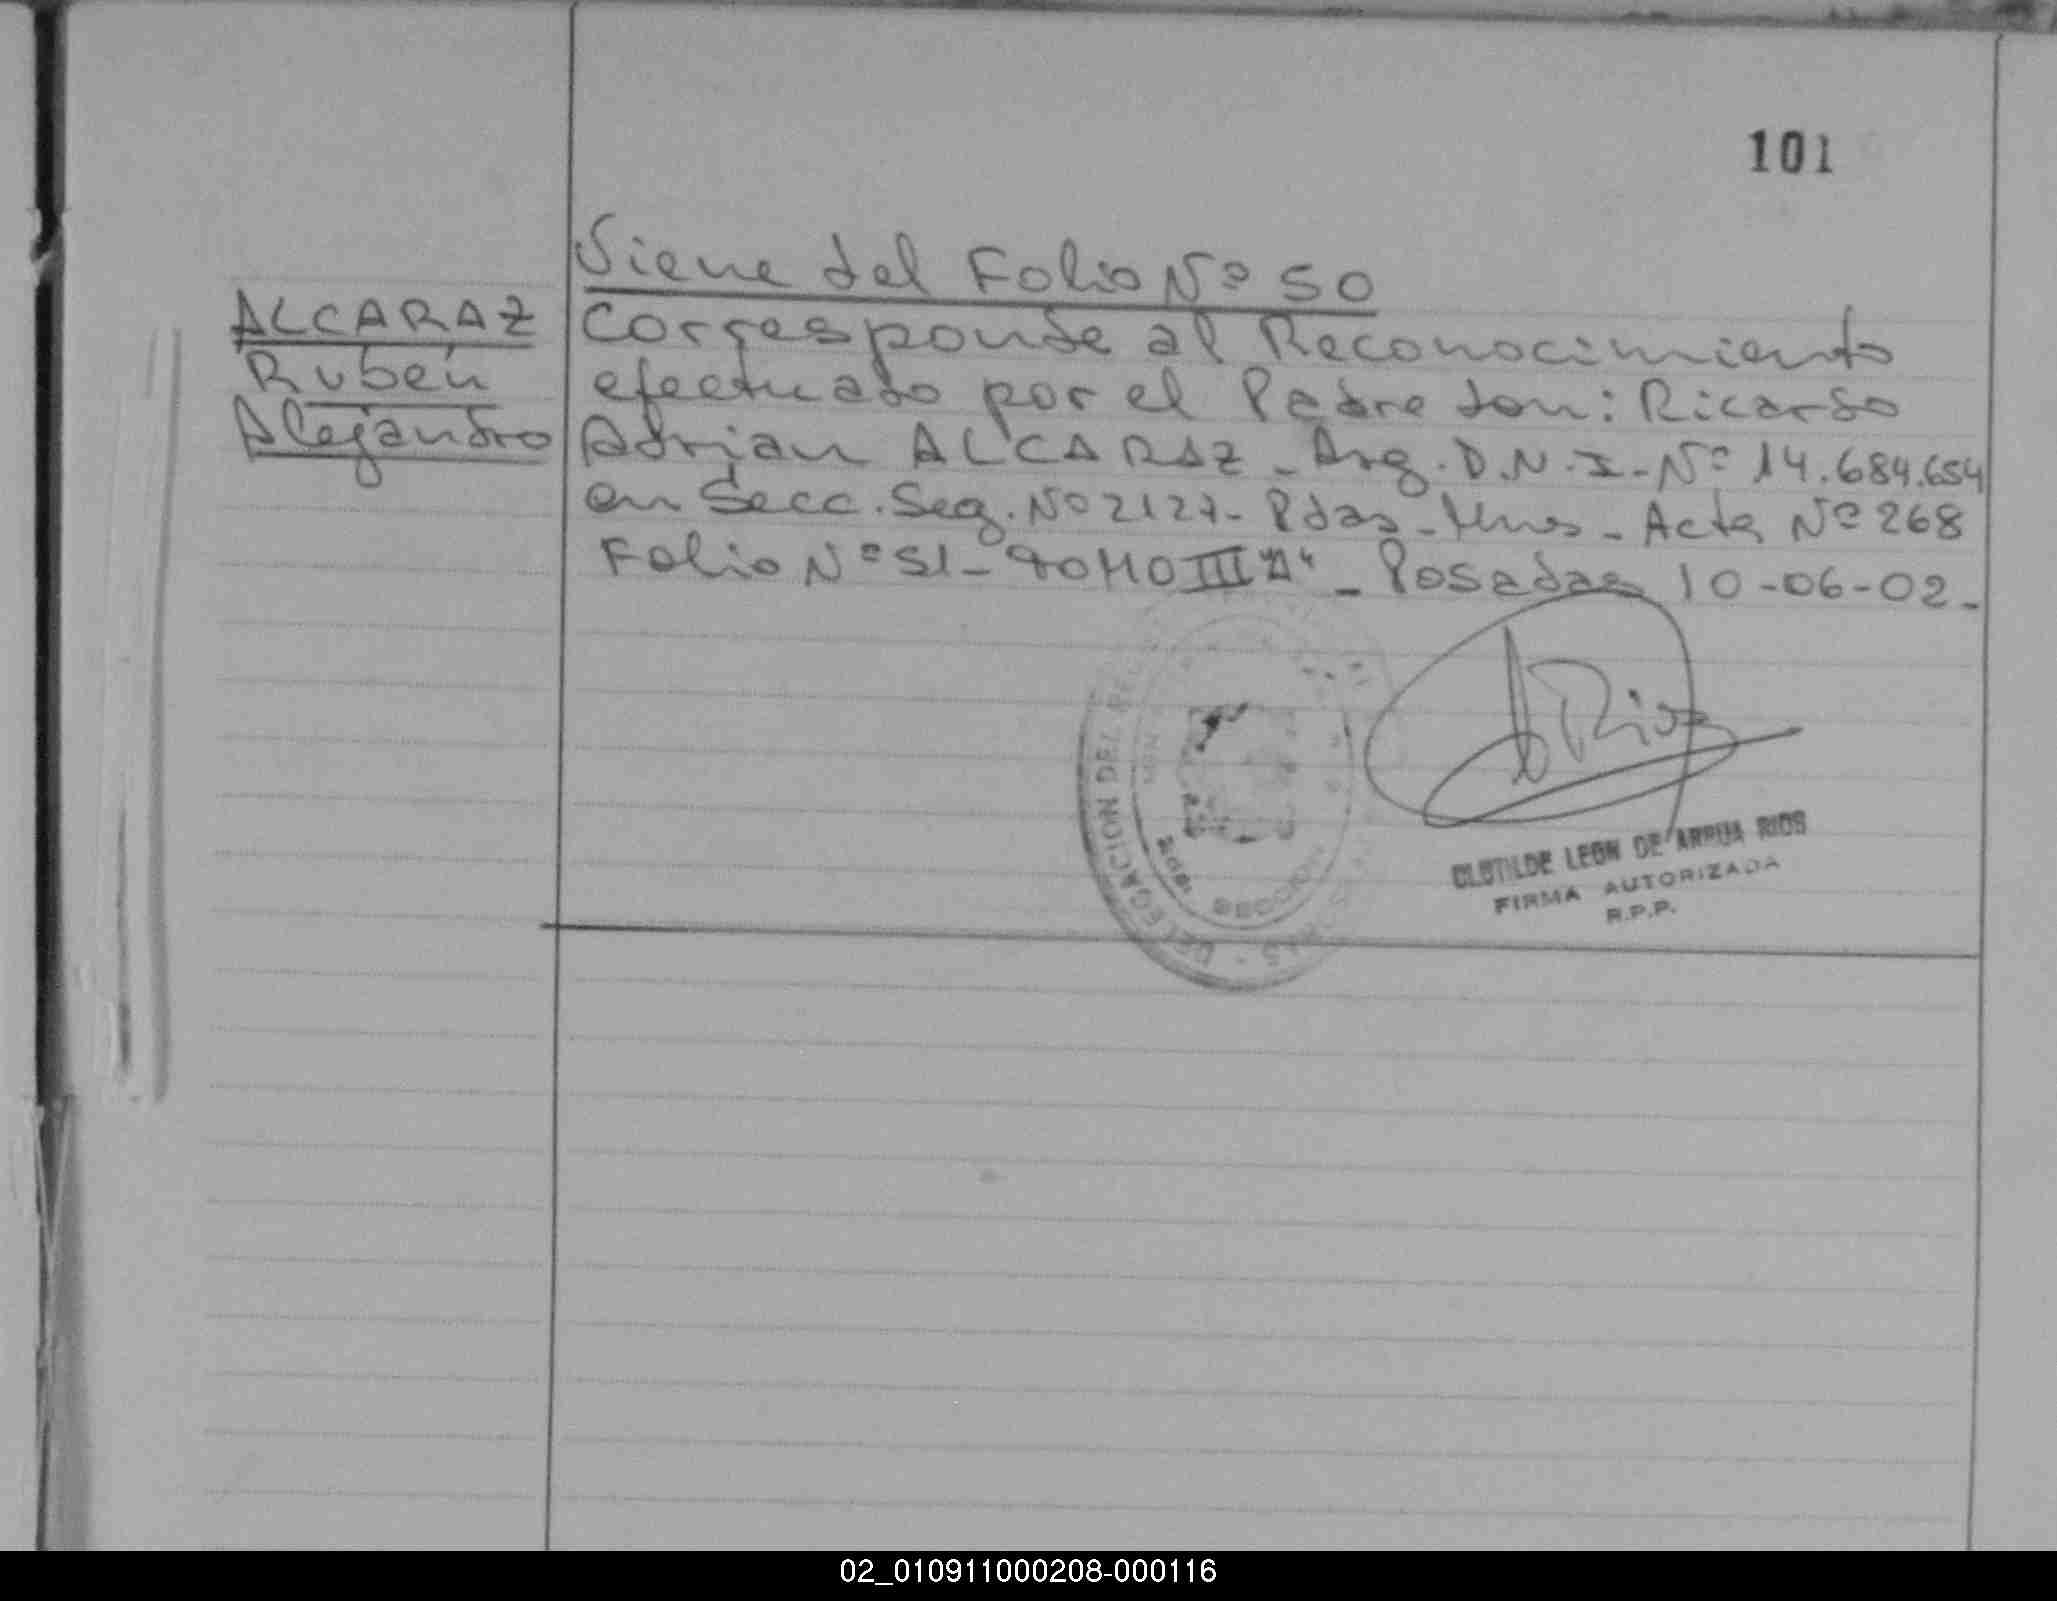 101
Viene del Folio Nº 50
ALCARAZ
Rubén
Alejandro
Corresponde al Reconocimiento
efectuado por el Padre don: Ricardo
Adrian ALCARAZ - Arg. D.N.I - Nº 14.684.654
en Secc. Seg. Nº 2127 - Pdas - Mnes - Acta Nº 268
Folio Nº 51 - TOMO III "A" - Posadas 10-06-02.-
Rios
DELEGACION DEL
SECCION
CLOTILDE LEON DE ARRUA RIOS
FIRMA AUTORIZADA
R.P.P.
02_010911000208-000116